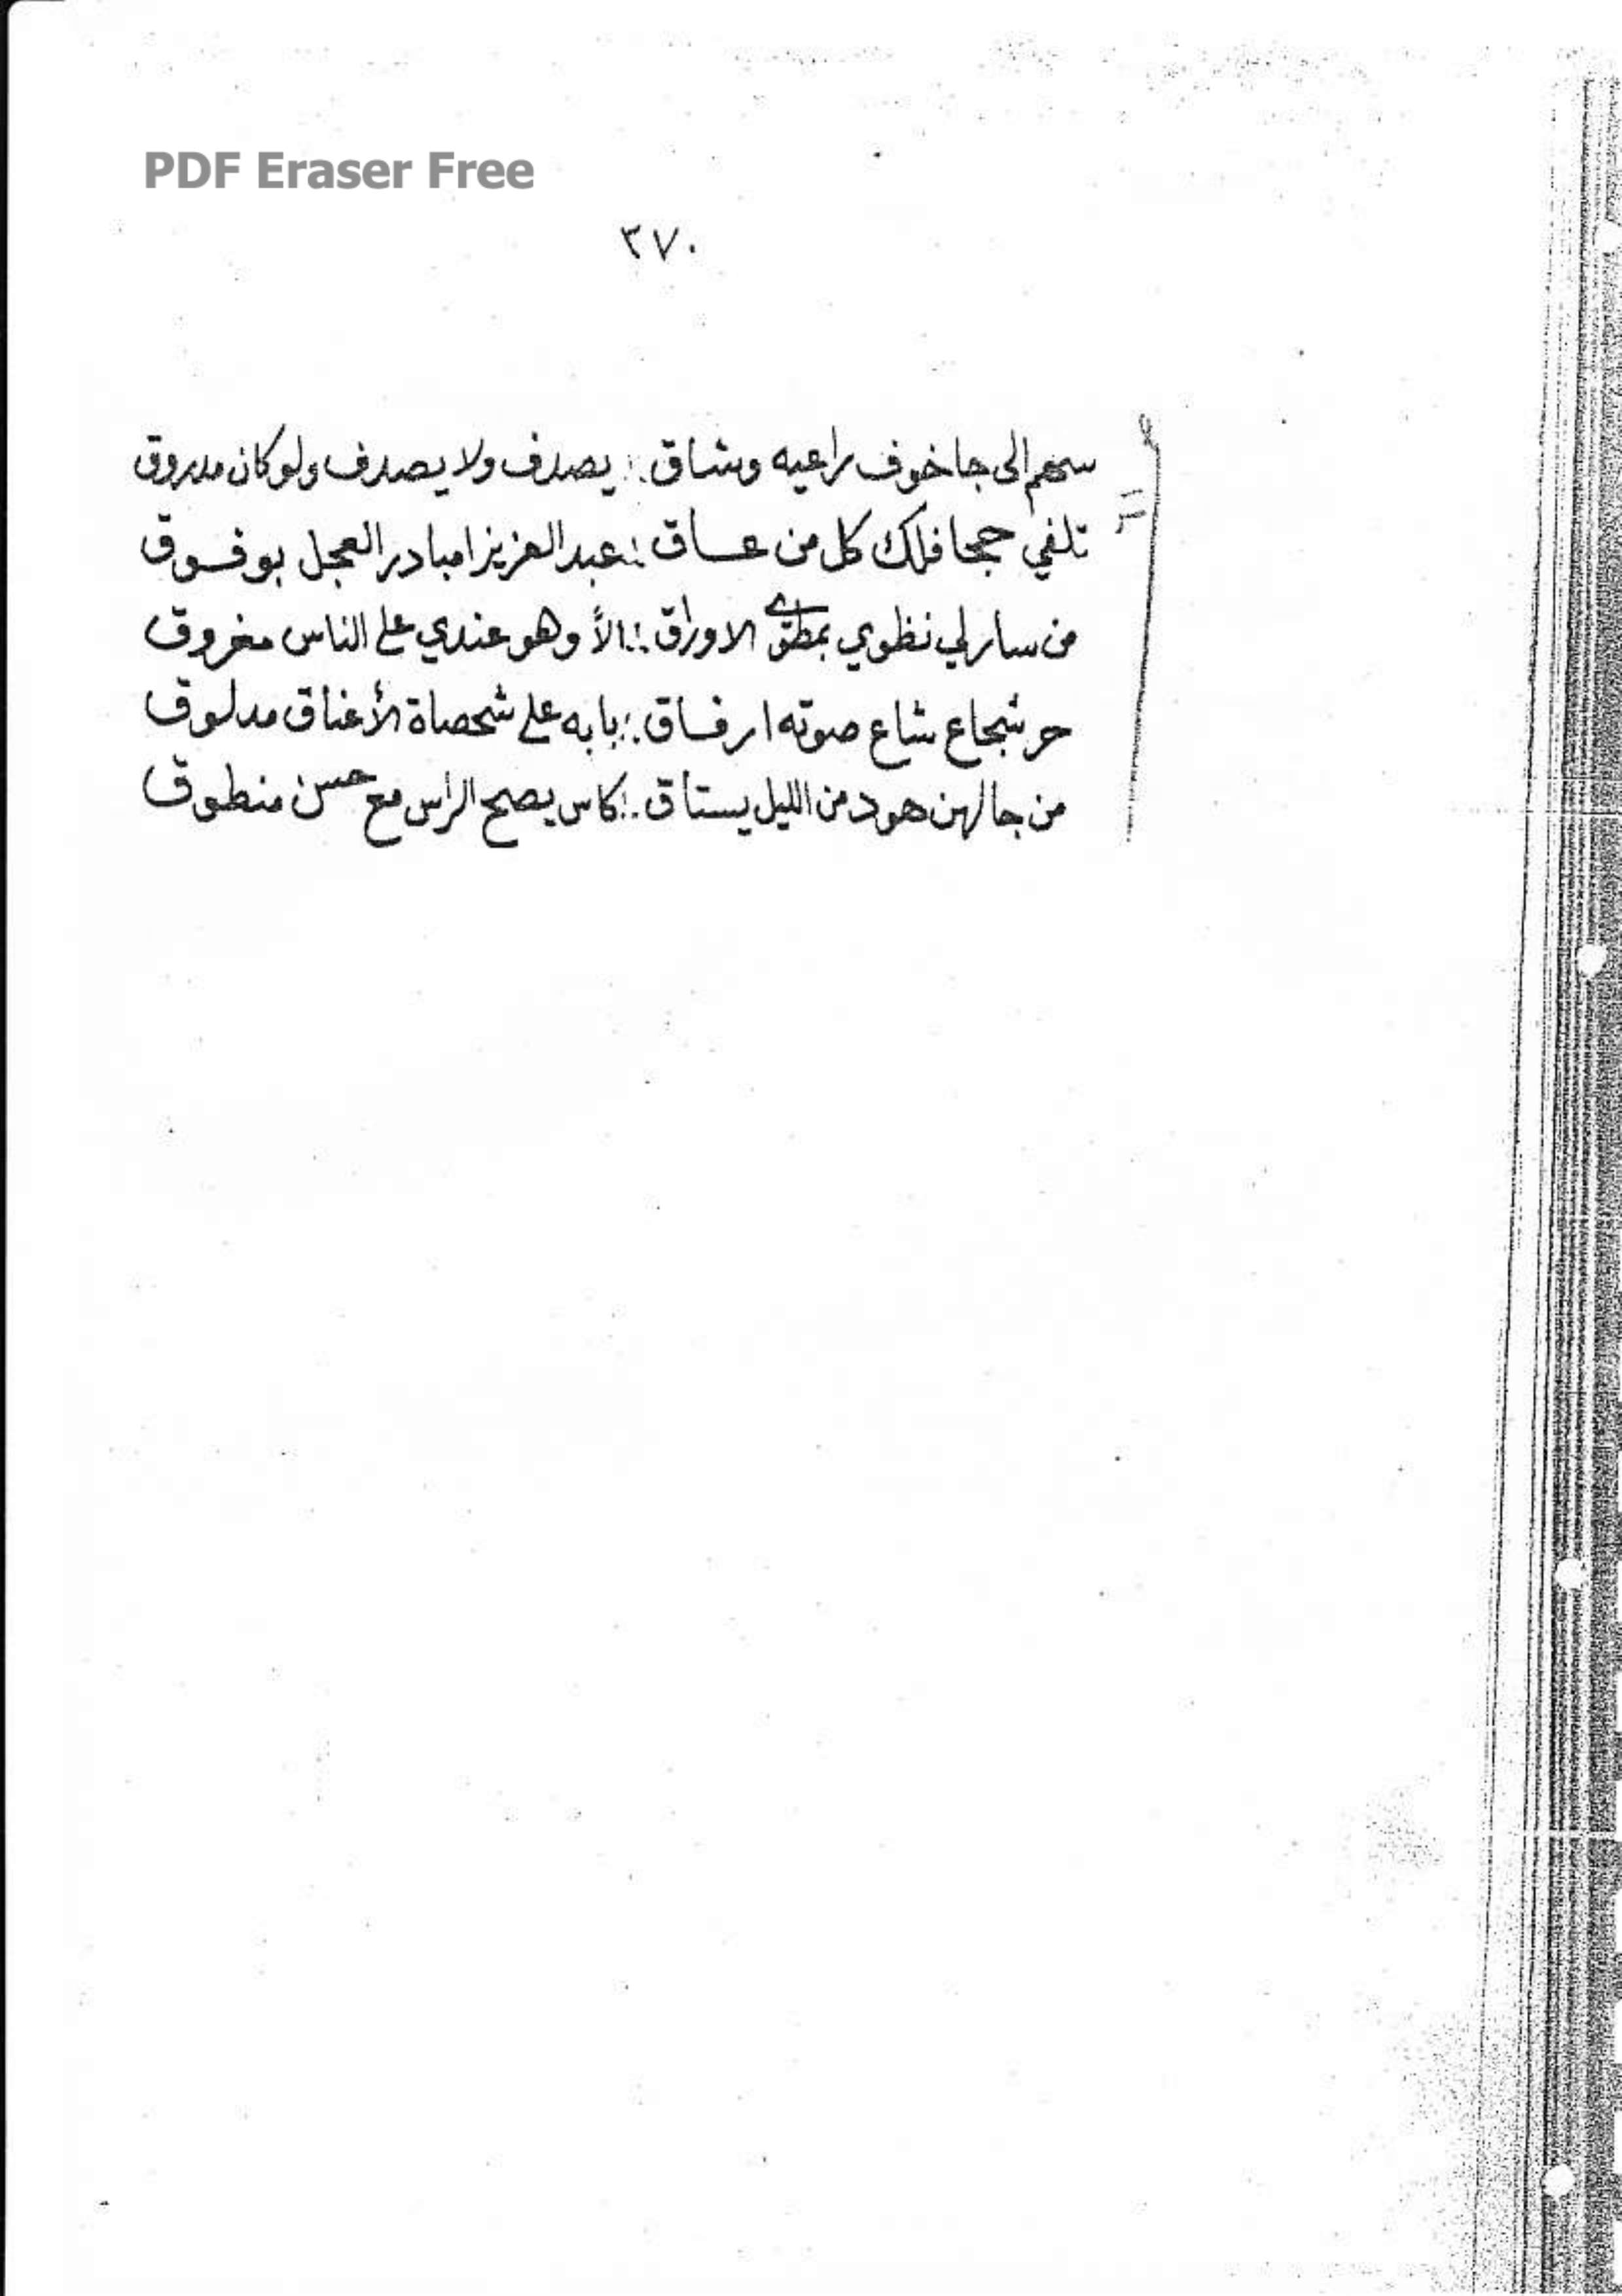 PDF Eraser Free
٢٧٠
سهم الى جا خوف راعيه وشاق ∴ يصدف ولا يصدف ولو كان مدروق
تلفي حجا فلك كل من عاق ∴ عبدالعزيز امبادر العجل بو فوق
من سار لي نظوي بمطوى الاوراق ∴ الاّ وهو عندي على الناس مفروق
حر شجاع شاع صوته ارفاق ∴ بابه على شحصاة الأعناق مدلوق
من جالهن هود من الليل يستاق ∴ كاس يصحح الراس مع حسن منطوق